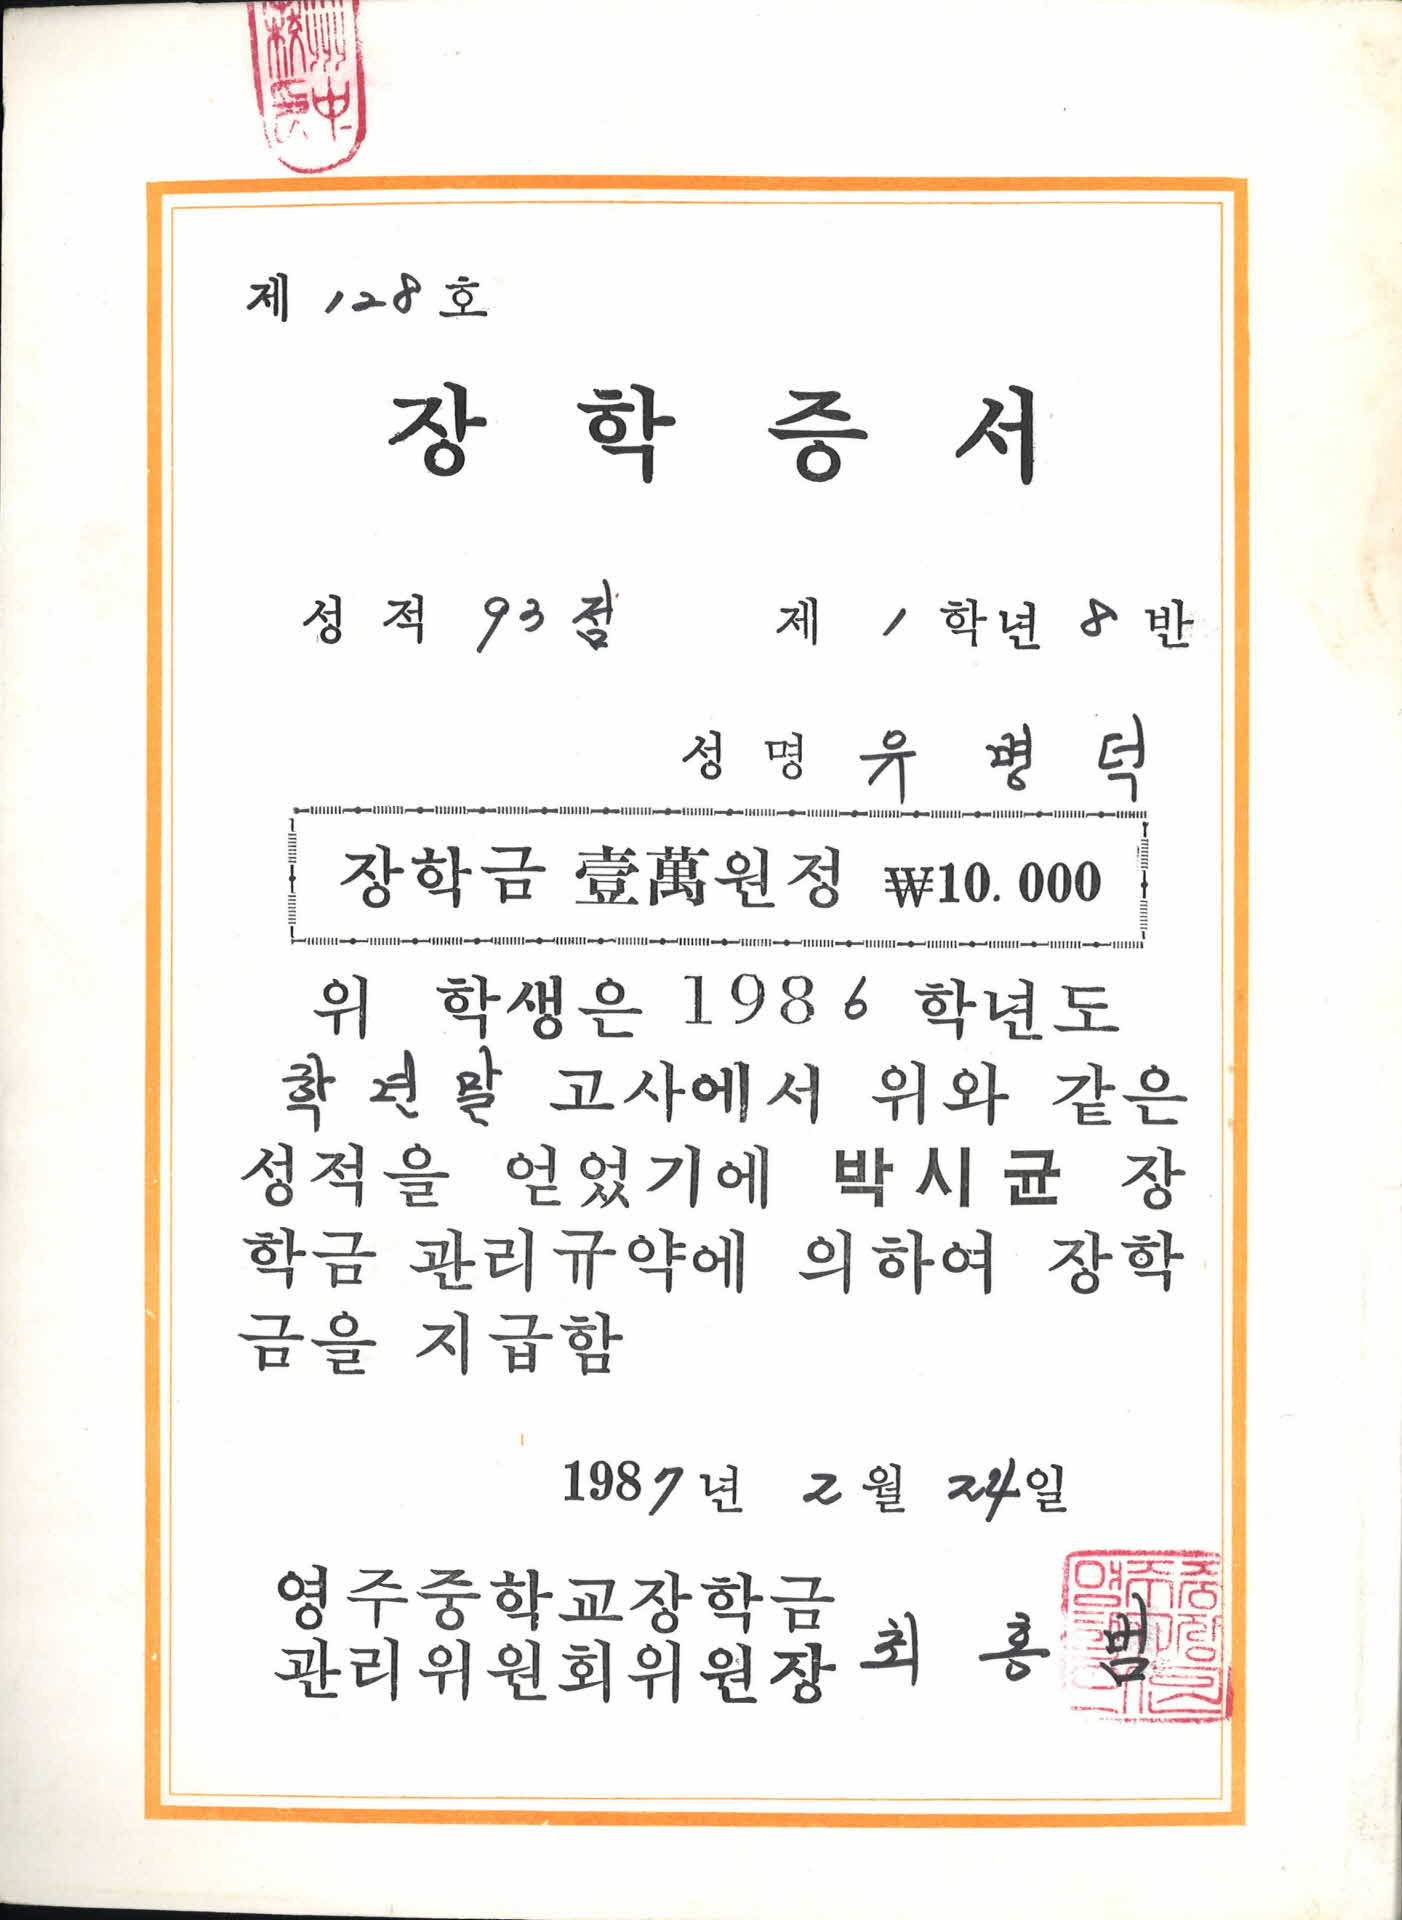 제 128 호
장학증서
성적 93점 제 1 학년 8 반
성명 유병덕
장학금 壹萬원정 ₩10.000
위 학생은 1986 학년도
학년말 고사에서 위와 같은
성적을 얻었기에 박시균 장
학금 관리규약에 의하여 장학
금을 지급함
1987년 2월 24일
영주중학교장학금
관리위원회위원장 최홍범